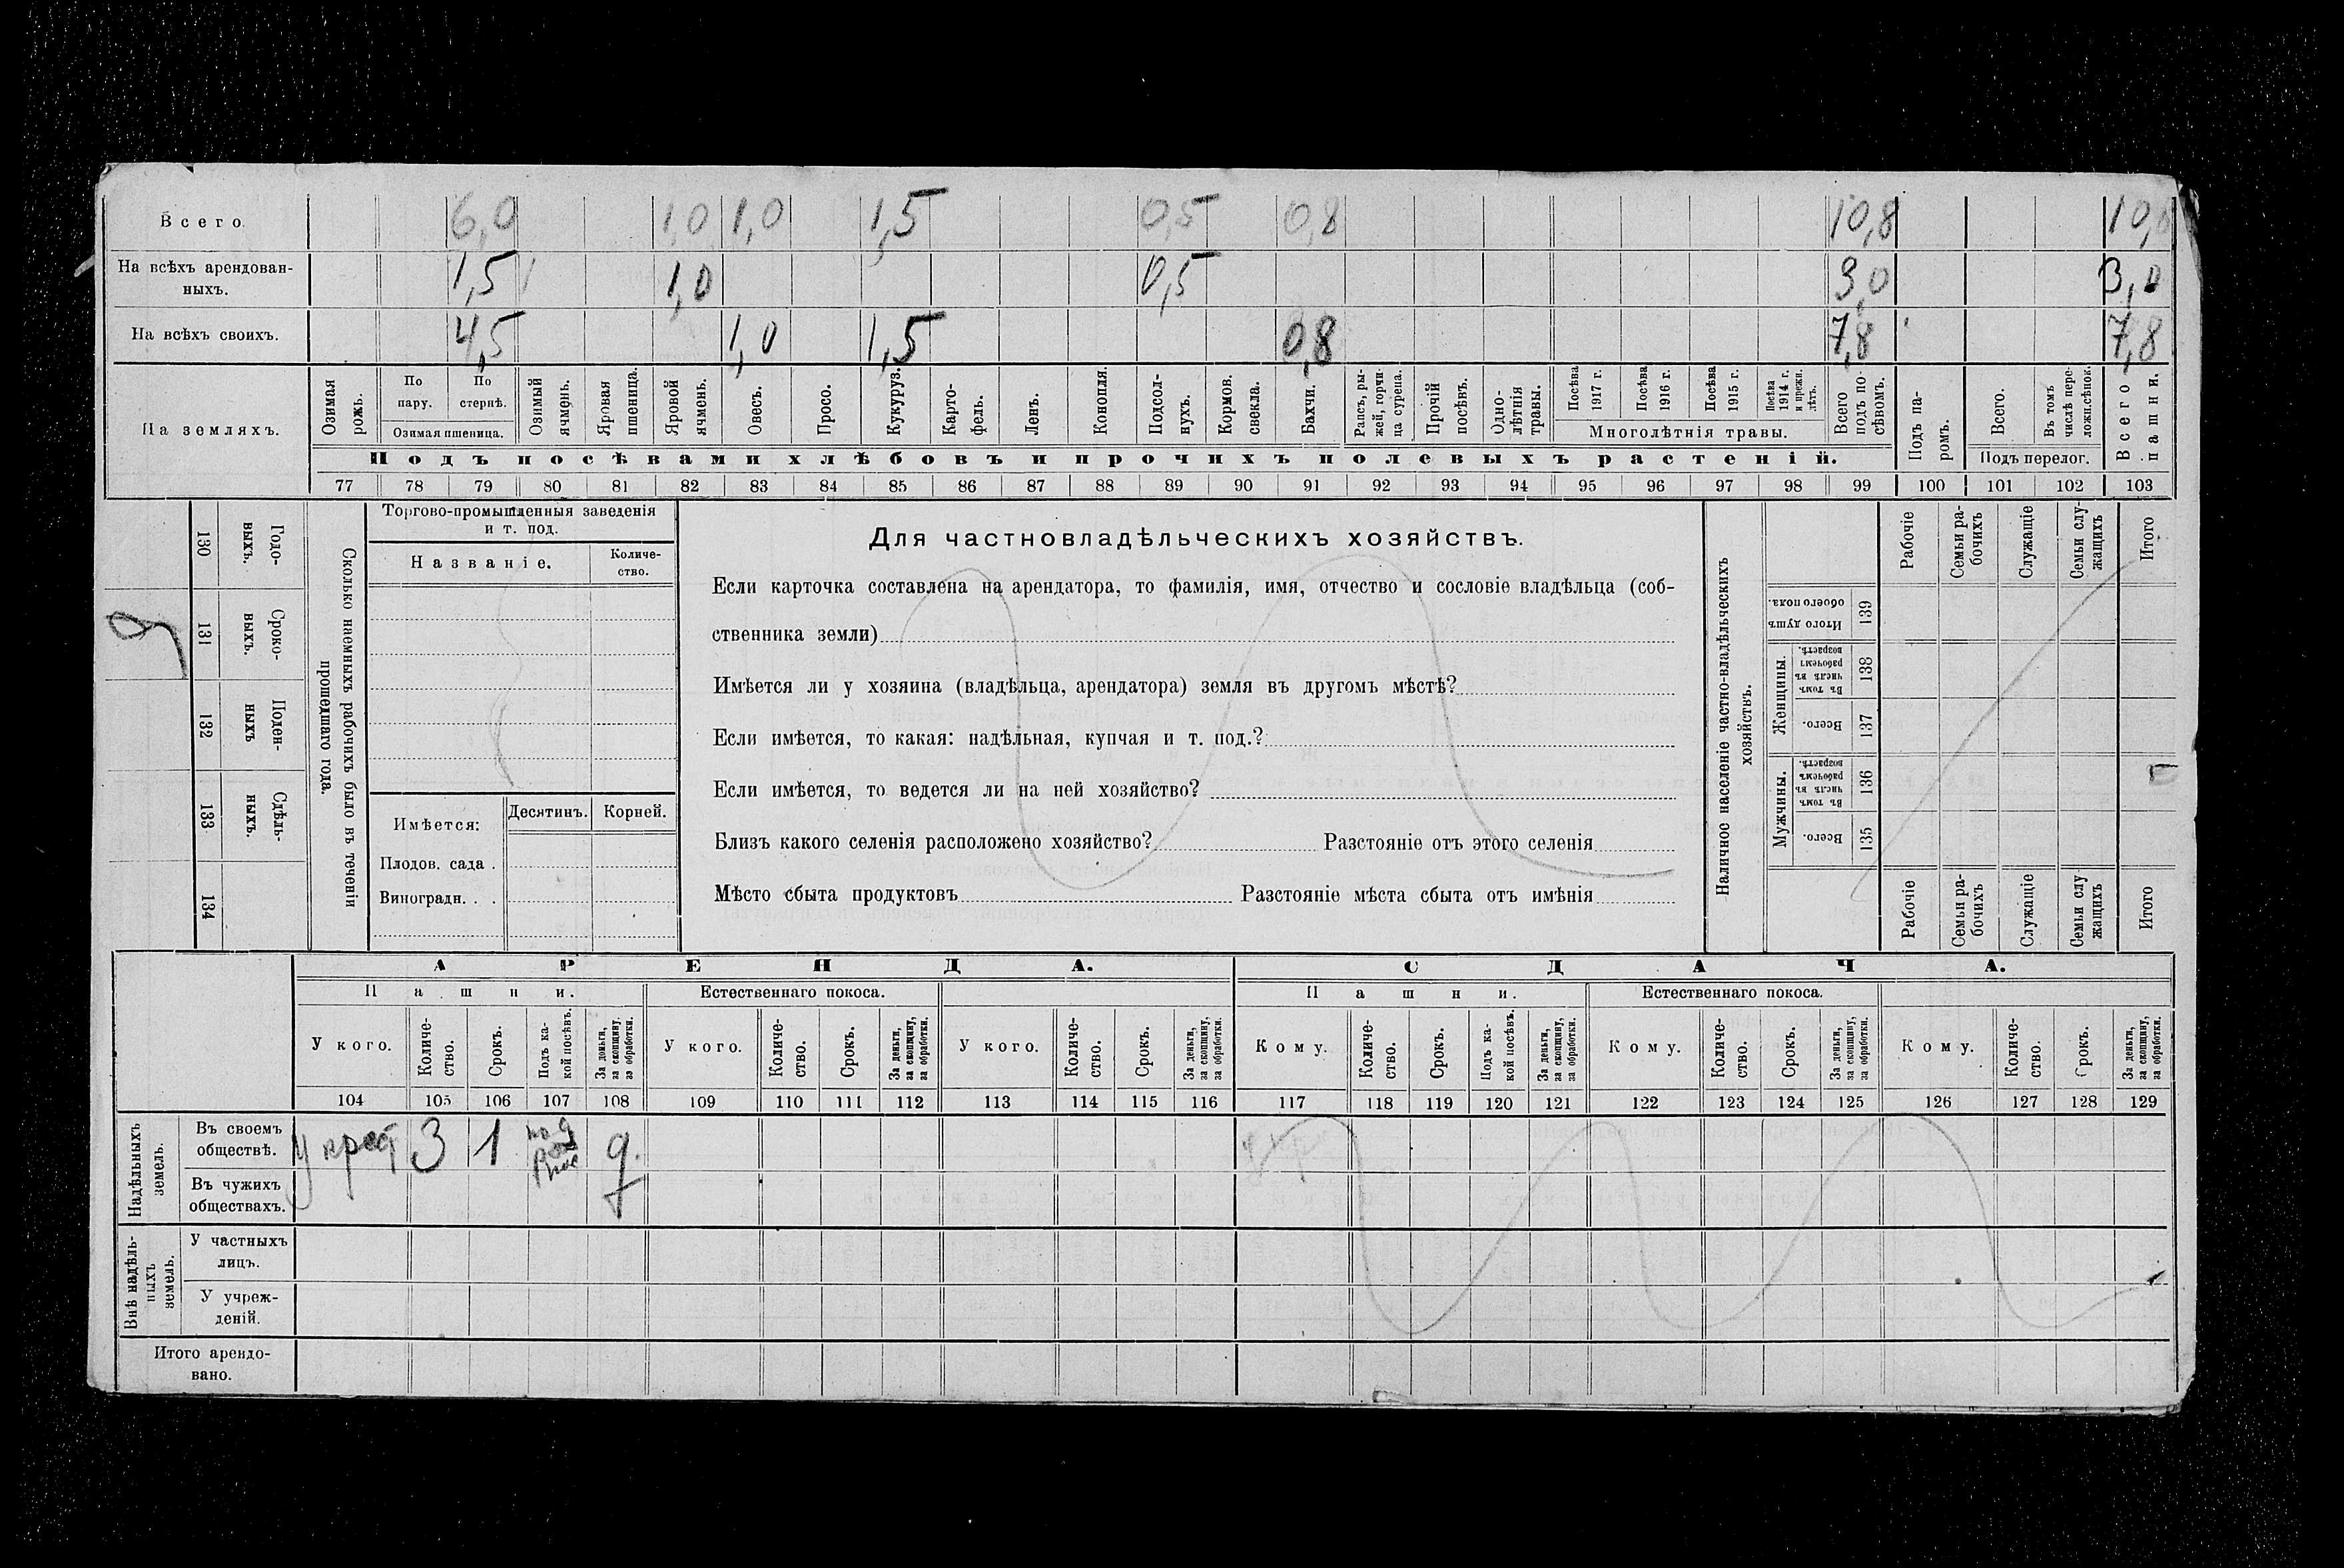 Всего. 6,0 1,0 1,0 1,5 0,5 0,8 10,8 10,8
На всѣхъ арендован-
ныхъ. 1,5 1,0 0,5 3,0 3,0
На всѣхъ своихъ. 4,5 1,0 1,5 0,8 7,8 7,8
На земляхъ.
Озимая рожь.
По пару.
По стернѣ.
Озимая пшеница.
Озимый ячмень.
Яровая пшеница.
Яровой ячмень.
Овесъ.
Просо.
Кукуруз.
Карто-
фель.
Ленъ.
Конопля.
Подсол-
нухъ.
Кормов. свекла.
Бахчи.
Рапсъ, ры-
жей, горчи-
ца сурепа.
Прочій посѣвъ.
Одно-
лѣтнія травы.
Посѣва 1917 г.
Посѣва 1916 г.
Посѣва 1915 г.
Посѣва 1914 г. и прежн. лѣтъ.
Многолѣтнія травы.
Всего подъ по-
сѣвомъ.
Подъ па-
ромъ.
Всего.
Въ томъ числѣ пере-
ложн.сѣнок.
Подъ перелог.
Всего пашни.
Подъ посѣвами хлѣбовъ и прочихъ полевыхъ растеній.
77 78 79 80 81 82 83 84 85 86 87 88 89 90 91 92 93 94 95 96 97 98 99 100 101 102 103
Годо-
выхъ. 130
Сроко-
ныхъ. 131
Поден-
ныхъ 132
Сдѣль-
ныхъ. 133
134
Сколько наемныхъ рабочихъ было въ теченіи
прошедшаго года.
Торгово-промышленныя заведенія
и т. под.
Названіе.
Количе-
ство.
Имѣется: Десятинъ. Корней.
Плодов. сада .
Виноградн. . .
Для частновладѣльческихъ хозяйствъ.
Если карточка составлена на арендатора, то фамилія, имя, отчество и сословіе владѣльца (соб-
ственника земли)
Имѣется ли у хозяина (владѣльца, арендатора) земля въ другомъ мѣстѣ?
Если имѣется, то какая: надѣльная, купчая и т. под.?
Если имѣется, то ведется ли на ней хозяйство?
Близъ какого селенія расположено хозяйство? Разстояніе отъ этого селенія
Мѣсто сбыта продуктовъ Разстояніе мѣста сбыта отъ имѣнія
Наличное населеніе частно-владѣльческихъ
хозяйствъ.
Рабочіе
Семьи ра-
бочихъ
Служащіе
Семьи слу-
жащихъ
Итого
Итого душъ обоего пола. 139
Женщины.
Въ томъ числѣ въ рабочемъ возрастѣ. 138
Всего. 137
Мужчины.
Въ томъ числѣ въ рабочемъ возрастѣ. 136
Всего. 135
Рабочіе
Семьи ра-
бочихъ
Служащіе
Семьи слу
жащихъ
Итого
АРЕНДА. СДАЧА.
Пашни. Естественнаго покоса. Пашни. Естественнаго покоса.
У кого.
Количе-
ство.
Срокъ.
Подъ ка-
кой посѣвъ.
За деньги,
за скопщину,
за обработки.
У кого.
Количе-
ство.
Срокъ.
За деньги,
за скопщину,
за обработки.
У кого.
Количе-
ство.
Срокъ.
За деньги,
за скопщину,
за обработки.
Кому.
Количе-
ство.
Срокъ.
Подъ ка-
кой посѣвъ.
За деньги,
за скопщину,
за обработки.
Кому.
Количе-
ство.
Срокъ.
За деньги,
за скопщину,
за обработки.
Кому.
Количе-
ство.
Срокъ.
За деньги,
за скопщину,
за обработки.
104 105 106 107 108 109 110 111 112 113 114 115 116 117 118 119 120 121 122 123 124 125 126 127 128 129
Надѣльныхъ
земель.
Въ своемъ
обществѣ. У крест 3 1 д.
Въ чужихъ
обществахъ.
Внѣ надѣль-
ныхъ
земель.
У частныхъ
лицъ.
У учреж-
деній.
Итого арендо-
вано.